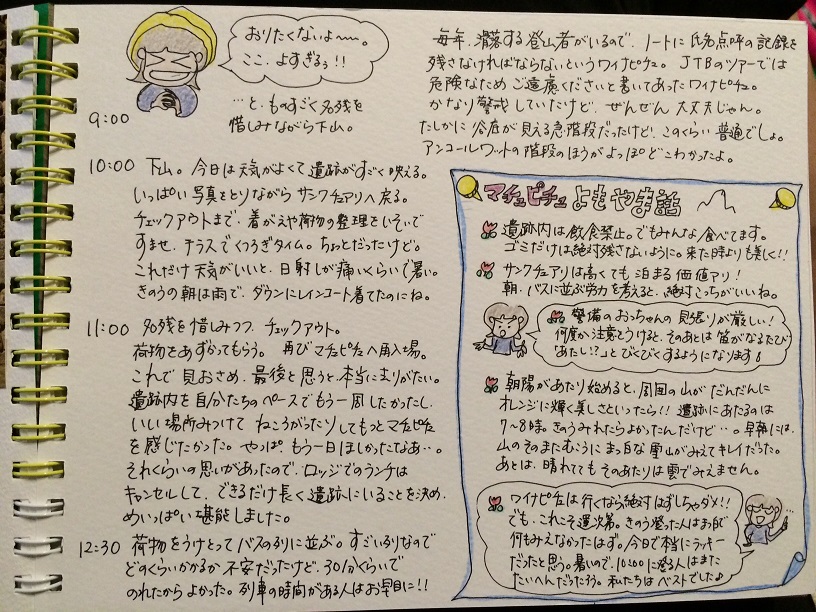 おりたくないよ〜〜。
ここ、よすぎるぅ!!
…と、ものすごく名残を
惜しみながら下山。
9:00
10:00 下山。今日は天気がよくて遺跡がすごく映える。
いっぱい写真をとりながら サンクチュアリへ戻る。
チェックアウトまで、着がえや荷物の整理をいそいで
すませ、テラスでくつろぎタイム。ちょっとだったけど。
これだけ天気がいいと、日射しが痛いくらいで暑い。
きのうの朝は雨で、ダウンにレインコート着てたのにね。
11:00 名残を惜しみつつ、チェックアウト。
荷物をあずかってもらう。 再びマチュピチュへ再入場。
これで見おさめ、最後と思うと、本当にまりがたい。
遺跡内を自分たちのペースでもう一周したかったし、
いい場所みつけて ねころがったりしてもっとマチュピチュ
を感じたかった。やっぱ、もう一日ほしかったなあ…。
それぐらいの思いがあったので、ロッジでのランチは
キャンセルして、できるだけ長く遺跡にいることを決め、
めいっぱい堪能しました。
12:30 荷物をうけとってバスの列に並ぶ。すごい列なので
どのくらいかかるか 不安だったけど、30分くらいで
のれたからよかった。列車の時間がある人はお早目に!!
毎年、滑落する登山者がいるので、ノートに氏名点呼の記録を
残さなければならないというワイナピチュ。JTBのツアーでは
危険なため ご遠慮くださいと書いてあったワイナピチュ。
かなり警戒していたけど、ぜんぜん 大丈夫じゃん。
たしかに 谷底が見える急階段だったけど、このくらい普通でしょ。
アンコールワットの階段のほうがよっぽどこわかったよ。
マチュピチュ よもやま話
遺跡内は飲食禁止。でもみんな食べてます。
ゴミだけは絶対残さないように。来た時よりも美しく!!
サンクチュアリは高くても泊まる価値アリ!
朝、バスに並ぶ労力を考えると、絶対こっちがいいね。
警備のおっちゃんの見張りが厳しい!
何度か注意をうけると、そのあとは笛がなるたび
「あたし?」とびくびくするようになります♪
朝陽があたり始めると、周囲の山がだんだんに
オレンジに輝く美しさといったら!! 遺跡にあたるのは
7〜8時。きのうみれたらよかったんだけど…。早朝には、
山のそのまたむこうに まっ白な雪山がみえてキレイだった。
あとは、晴れてもそのあたりは雲でみえません。
ワイナピチュは行くなら絶対はずしちゃダメ!!
でも、これこそ運次第。きのう登った人はまっ白で
何もみえなかったはず。今日で本当にラッキー
だったと思う。暑いので、10:00に登る人はまた
たいへんだったろう。私たちはベストでした♪